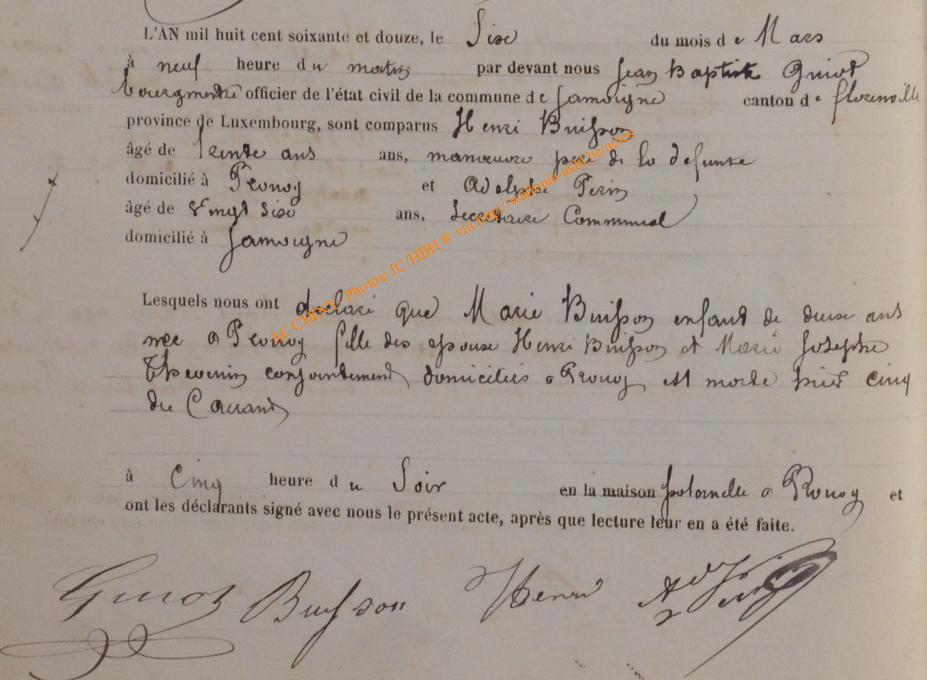 L'AN mil huit cent soixante et douze, le Six du mois de Mars
à neuf heure du matin par devant nous Jean Baptiste Guiot
bourgmestre officier de l'état civil de la commune de Jamoigne canton de florenville
province de Luxembourg, sont comparus Henri Buisson
âgé de trente ans ans, manœuvre pere de la defunte
domicilié à Prouvy et Adolphe Perin
âgé de Vingt Six ans, Secretaire Communal
domicilié à Jamoigne
Lesquels nous ont declaré que Marie Buisson enfant de deux ans
née a Prouvy fille des epoux Henri Buisson et Marie Josephe
Thevenin conjointement domiciliés a Prouvy est morte hier cinq
du Courant
à Cinq heure du Soir en la maison paternelle a Prouvy et
ont les déclarants signé avec nous le présent acte, après que lecture leur en a été faite.
Guiot Buisson Henri